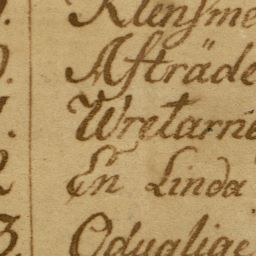 Klensme
Afträde
Wretarne
2 En Linda
3. Oduglige